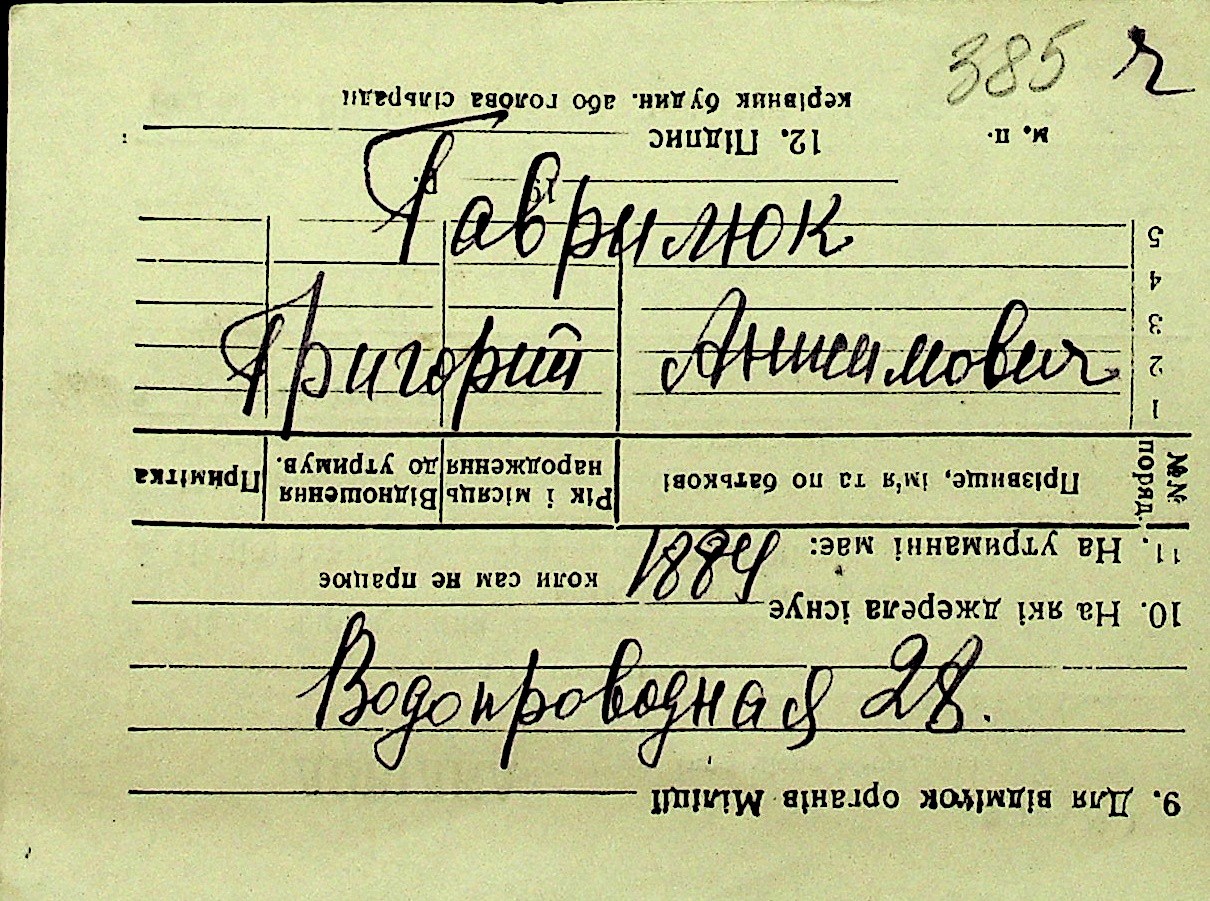 385 г
Гаврилюк
Григорий Анисимович
1884
Водопроводная 28.
9. Для відміток органів Міліції
10. На які джерела існує
коли сам не працює
11. На утриманні має:
№№ поряд. Прізвище, ім'я та по батькові Рік і місяць народження Відношення до утримув. Примітка
1
2
3
4
5
19 р.
м. п. 12. Підпис
керівник будин. або голова сільради